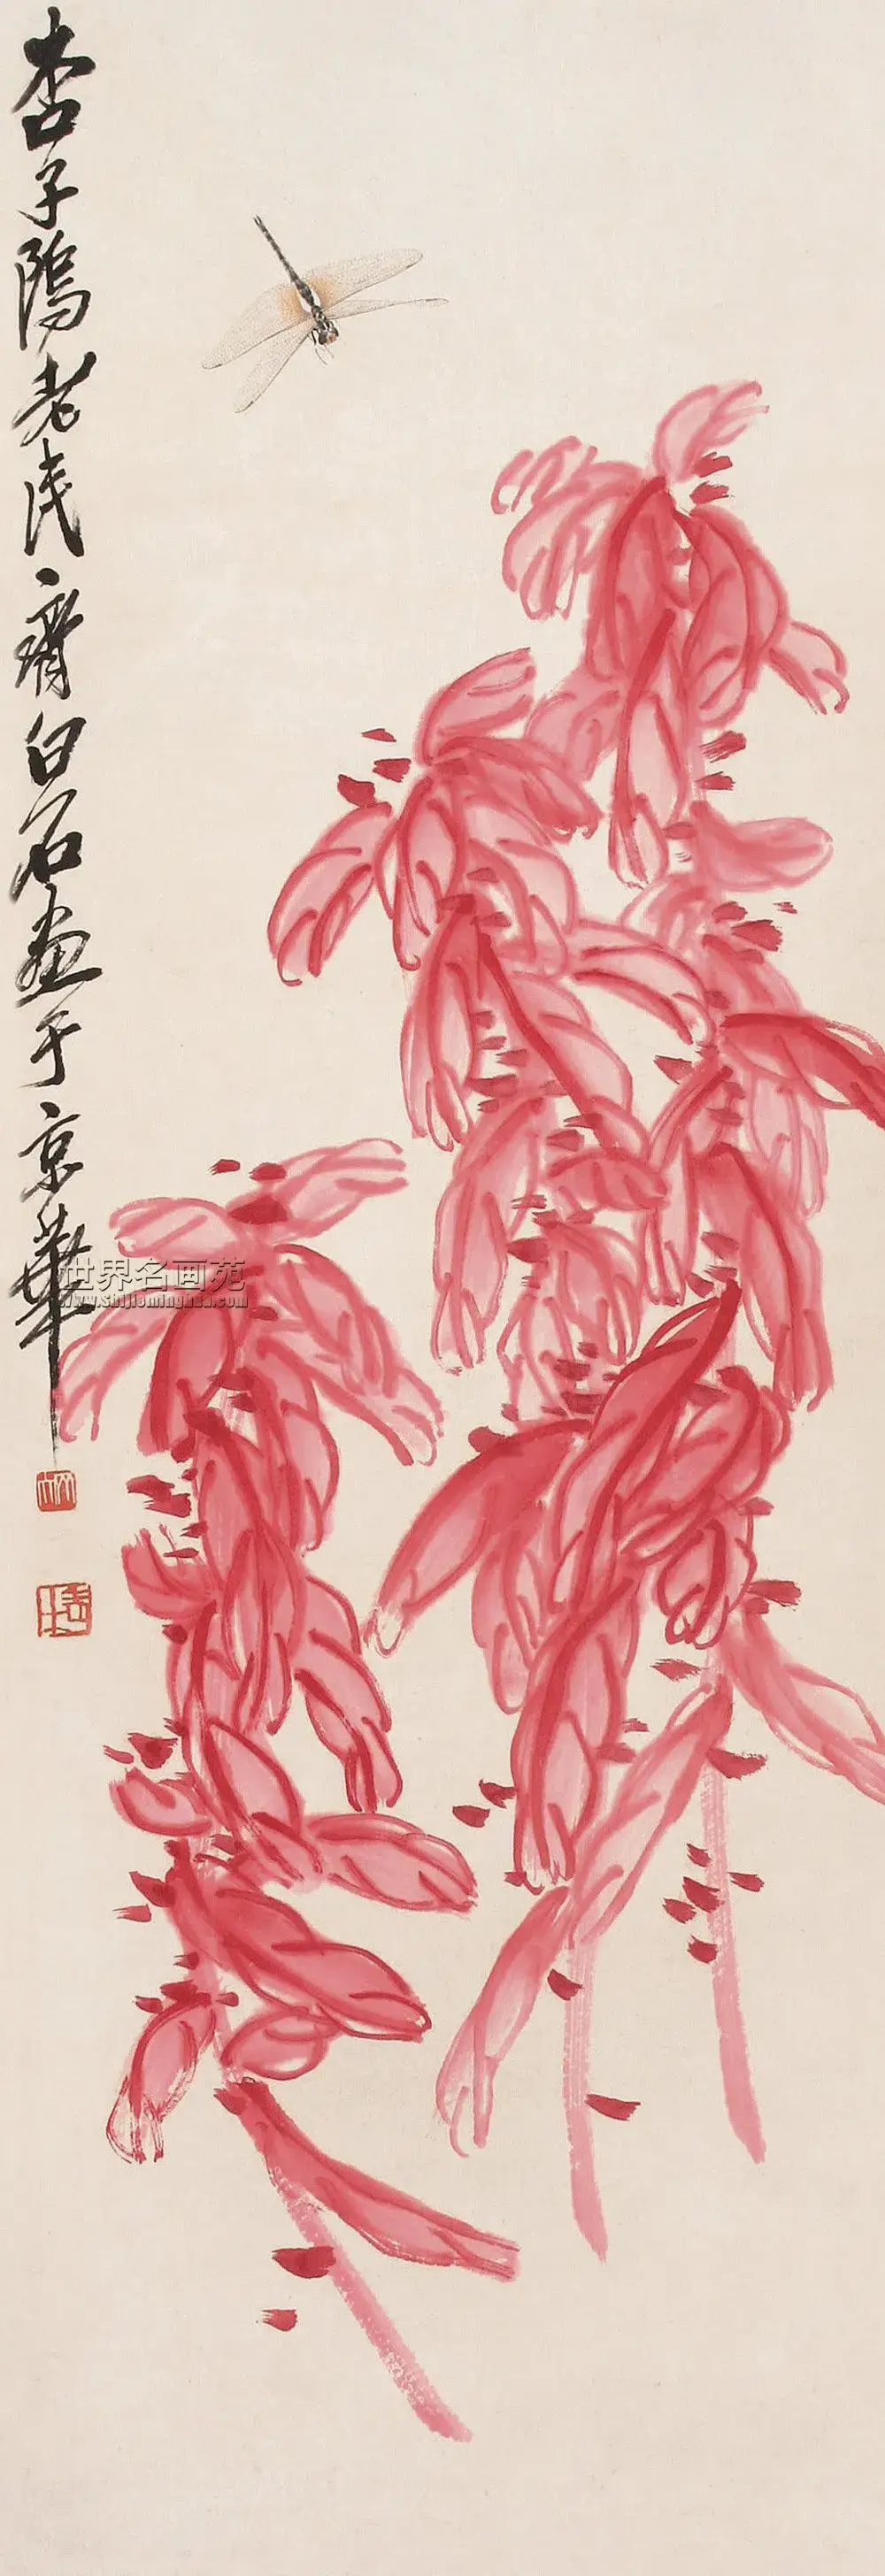 杏子隖老民齊白石畫于京華
世界名画苑
www.shijieminghua.com